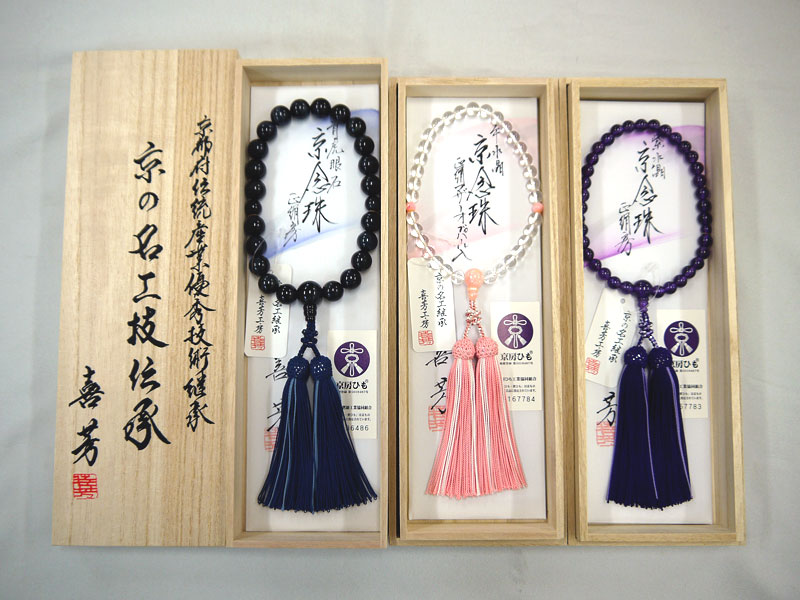 京都府伝統産業優秀技術継承
京の名工技伝承
喜芳
青虎眼石
京念珠
正絹房
京の名工継承
喜芳工房
京房ひも
6486
本水晶
京念珠
京の名工継承
喜芳工房
京房ひも
167784
紫水晶
京念珠
正絹房
京の名工継承
喜芳工房
京房ひも
67783